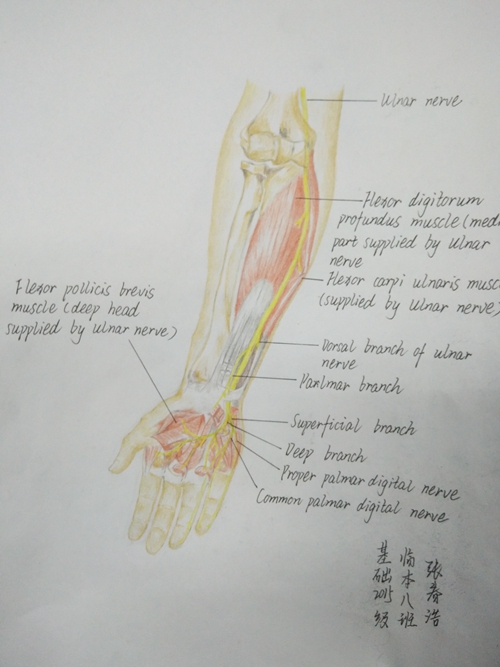 Ulnar nerve
Flexor digitorum
profundus muscle (medi
part supplied by ulnar
nerve
Flexor carpi ulnaris musc
(supplied by Ulnar nerve)
Flexor pollicis brevis
muscle (deep head
supplied by ulnar nerve)
Dorsal branch of ulnar
nerve
Paxlmar branch
Superficial branch
Deep branch
Proper palmar digital nerve
Common palmar digital nerve
基础2015级
临本八班
张春浩